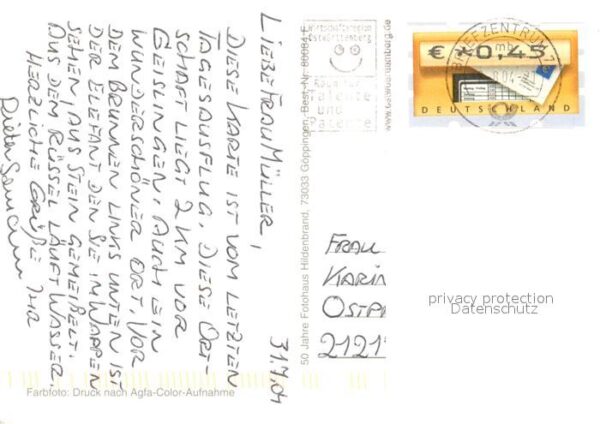 31.7.04
LIEBE FRAU MÜLLER,
DIESE KARTE IST VOM LETZTEN
TAGESAUSFLUG. DIESE ORT-
SCHAFT LIEGT 2 KM VOR
GEISLINGEN. AUCH EIN
WUNDERSCHÖNER ORT. VOR
DEM BRUNNEN LINKS UNTEN IST
DER ELEFANT DEN SIE IM WAPPEN
SEHEN, AUS STEIN GEMEIßELT.
AUS DEM RÜSSEL LÄUFT WASSER.
HERZLICHE GRÜßE IHR
Farbfoto: Druck nach Agfa-Color-Aufnahme
50 Jahre Fotohaus Hildenbrand, 73033 Göppingen, Best.-Nr.
Wirtschaftsregion
Ostwürttemberg
Raum für
Talente
und
Patente
BRIEFZENTRUM 73
€ *0,45
DEUTSCHLAND
FRAU
KARIN
OSTPR
2121
privacy protection
Datenschutz